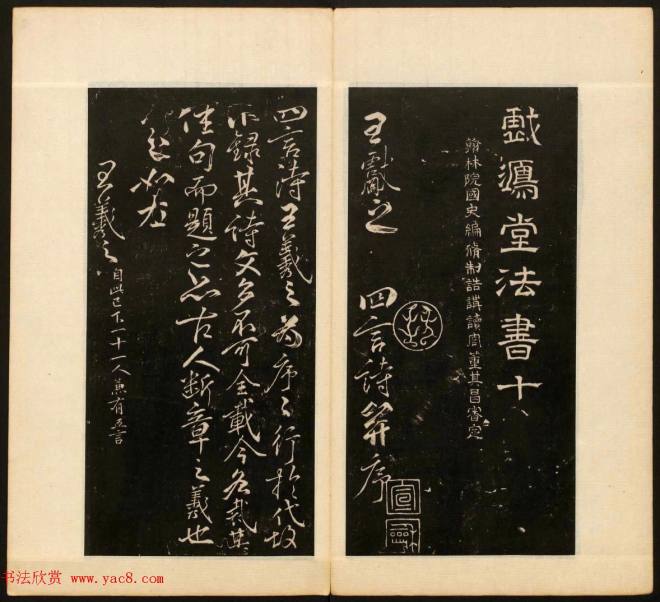 戲鴻堂法書十六
翰林院國史編脩制誥講讀官董其昌審定
王獻之
四言詩并序
四言詩王羲之為序序行於代故
不錄其詩文多不可全載今各裁其
佳句而題之亦古人斷章之義也
王羲之自此已下一十一人兼有五言
书法欣赏 www.yac8.com